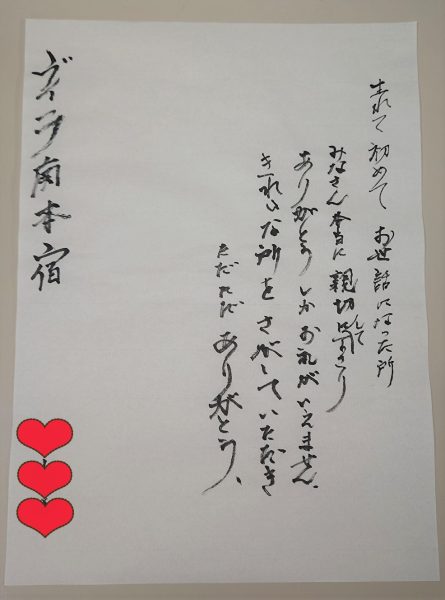 生れて初めてお世話になった所
みなさん本当に親切にして下さり
ありがとうしかお礼がいえません。
きれいな所をさがしていただき
ただただありがとう、
ヴィラ南本宿